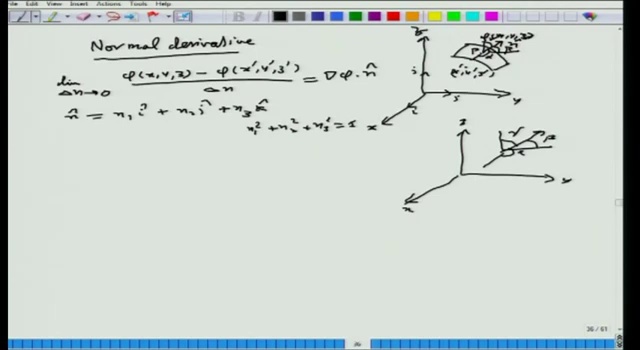 File Edit View Insert Actions Tools Help
Normal derivative
lim Δn→0 φ(x,y,z) − φ(x',y',z') / Δn = ∇φ·n̂
n̂ = n₁î + n₂ĵ + n₃k̂
n₁² + n₂² + n₃² = 1
z
(x',y',z')
y
x
z
y
x
36 / 61
36